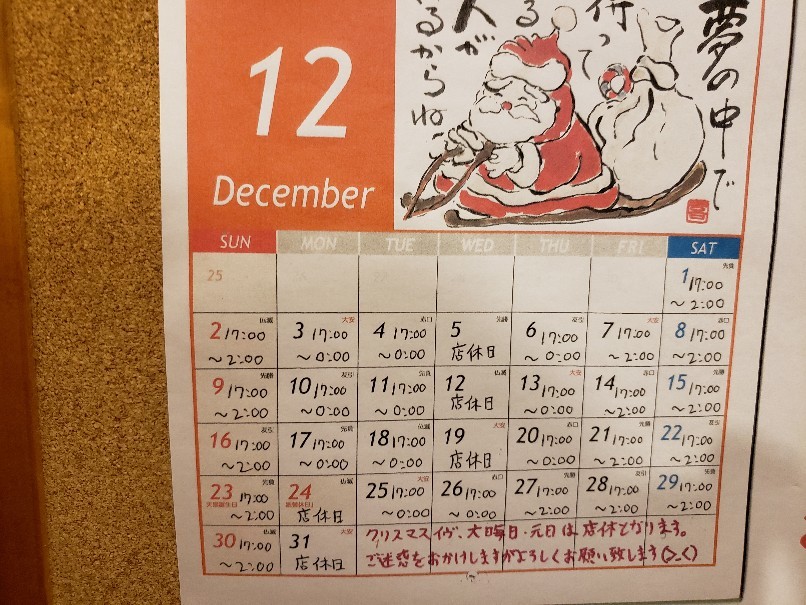 夢の中で
待って
る
人が
るからね
12
December
SUN MON TUE WED THU FRI SAT
25 1 先負 17:00 ～2:00
2 仏滅 17:00 ～2:00
3 大安 17:00 ～0:00
4 赤口 17:00 ～0:00
5 先勝 店休日
6 友引 17:00 ～0:00
7 大安 17:00 ～2:00
8 赤口 17:00 ～2:00
9 先勝 17:00 ～2:00
10 友引 17:00 ～0:00
11 先負 17:00 ～0:00
12 仏滅 店休日
13 大安 17:00 ～0:00
14 赤口 17:00 ～2:00
15 先勝 17:00 ～2:00
16 友引 17:00 ～2:00
17 先負 17:00 ～0:00
18 仏滅 17:00 ～0:00
19 大安 店休日
20 赤口 17:00 ～0:00
21 先勝 17:00 ～2:00
22 友引 17:00 ～2:00
23 先負 天皇誕生日 17:00 ～2:00
24 仏滅 振替休日 店休日
25 大安 17:00 ～0:00
26 赤口 17:00 ～0:00
27 先勝 17:00 ～2:00
28 友引 17:00 ～2:00
29 先負 17:00 ～2:00
30 仏滅 17:00 ～2:00
31 大安 店休日
クリスマスイヴ、大晦日・元日は店休となります。
ご迷惑をおかけしますがよろしくお願い致します(>_<)